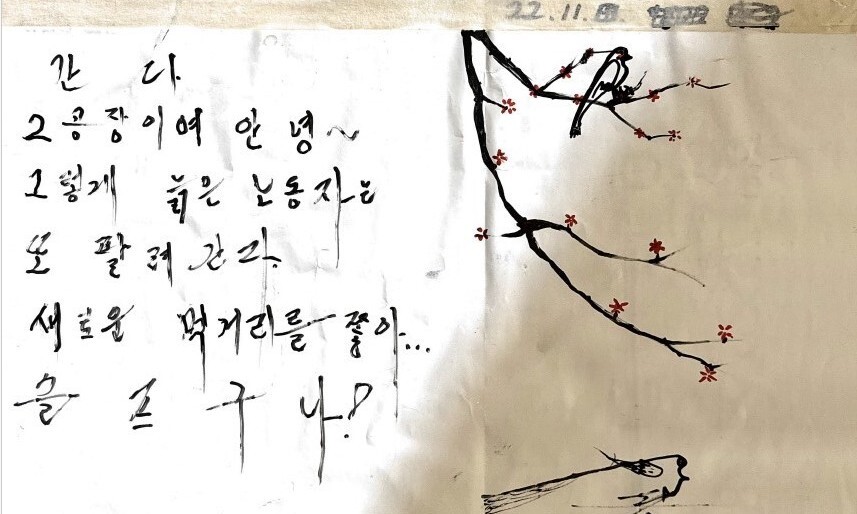 22.11.
간다
2공장이여 안녕~
그렇게 늙은 노동자는
또 팔려간다.
새로운 먹거리를 쫓아...
슬프구나!